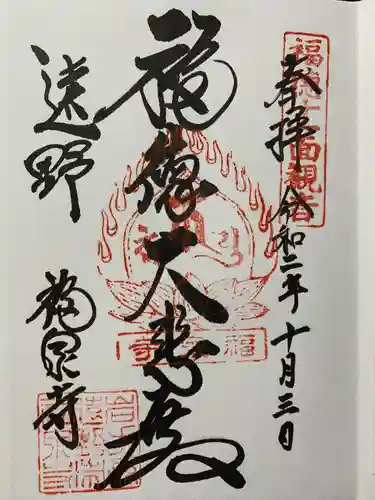 奉拝
令和二年十月三日
福徳十一面観音
福徳大悲殿
福泉寺
遠野
福泉寺